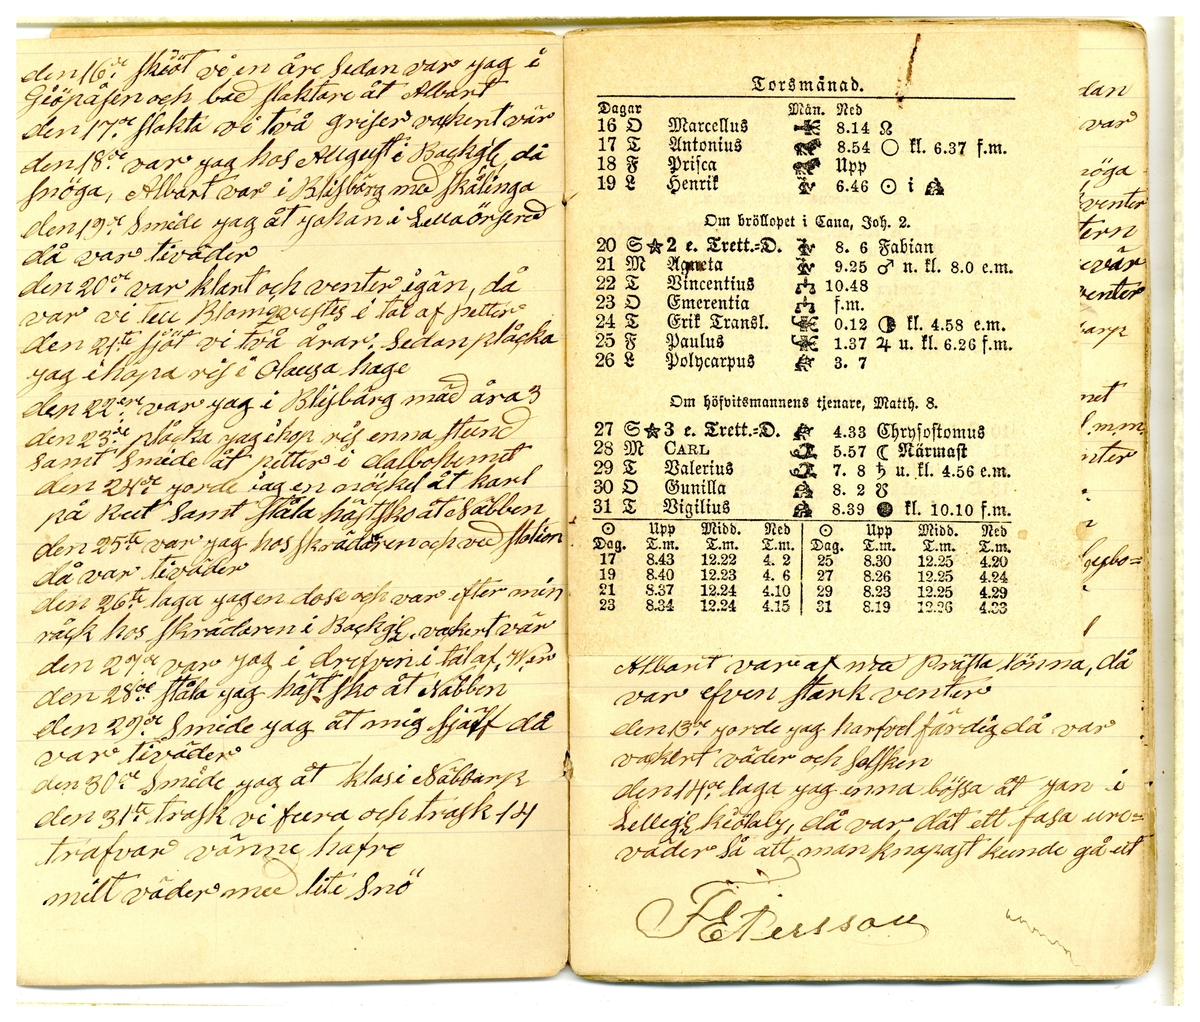 den 16de skiöt vi en åre sedan var jag i
Giöpåsen och bad slaktare åt Albart
den 17de slakta vi två griser vakert vär
den 18de var jag hos August i Backgl, då
snöga, Albart var i Blisbärg med skålinga
den 19de Smide jag åt johan i Lella örsered
då var tiväder
den 20de var klart och venter igän, då
var vi teu Blomqvistes i tal af petter
den 21ste sjöt vi två årar. Sedan plåcka
jag ihopa ris i Olausa hage
den 22dre var jag i Blisbärg måd åra 3
den 23de plåcka jag ihop ris enna stund
samt Smide åt petter i dalbostemet
den 24de jorde jag en nöckel åt karl
på Reet samt ståla hästsko åt Näbben
den 25te var jag hos skrädaren och ved stasion
då var tiväder
den 26te laga jag en dose och var efter min
råck hos skrädaren i Backgl. vakert vär
den 27de var jag i drefven i tal af, W.er
den 28de ståla jag häst sko åt Näbben
den 29de Smide jag åt mig sjålf då
var tiväder
den 30de Smide jag åt klas i Näbbarp
den 31te trask vi fura och trask 14
trafvar vänne hafre
milt väder med lite Snö
Torsmånad.
Dagar Mån. Ned
16 O Marcellus 8.14 ☊
17 T Antonius 8.54 ○ kl. 6.37 f.m.
18 F Prisca Upp
19 L Henrik 6.46 ☉ i ♒
Om bröllopet i Cana, Joh. 2.
20 S ★ 2 e. Trett.=D. 8. 6 Fabian
21 M Agneta 9.25 ♂ n. kl. 8.0 e.m.
22 T Vincentius 10.48
23 O Emerentia f.m.
24 T Erik Transl. 0.12 ◑ kl. 4.58 e.m.
25 F Paulus 1.37 ♃ u. kl. 6.26 f.m.
26 L Polycarpus 3. 7
Om höfvitsmannens tjenare, Matth. 8.
27 S ★ 3 e. Trett.=D. 4.33 Chrysostomus
28 M CARL 5.57 ☾ Närmast
29 T Valerius 7. 8 ♄ u. kl. 4.56 e.m.
30 O Gunilla 8. 2 ☋
31 T Vigilius 8.39 ● kl. 10.10 f.m.
☉ Upp Midd. Ned ☉ Upp Midd. Ned
Dag. T.m. T.m. T.m. Dag. T.m. T.m. T.m.
17 8.43 12.22 4. 2 25 8.30 12.25 4.20
19 8.40 12.23 4. 6 27 8.26 12.25 4.24
21 8.37 12.24 4.10 29 8.23 12.25 4.29
23 8.34 12.24 4.15 31 8.19 12.26 4.33
dan
var
nöga
venter
tern
evär
venter
arp
met
l. m.m.
nter
Albart vare af ma prästa lönna, då
var efven stark venter
den 13de jorde jag harfvel färdig då var
vakert väder och solsken
den 14de laga jag enna bössa åt jan i
Lellegl kiötaly, då var dåt ett fasa uro=
väder Så att man knapast kunde gå ut
F E Persson